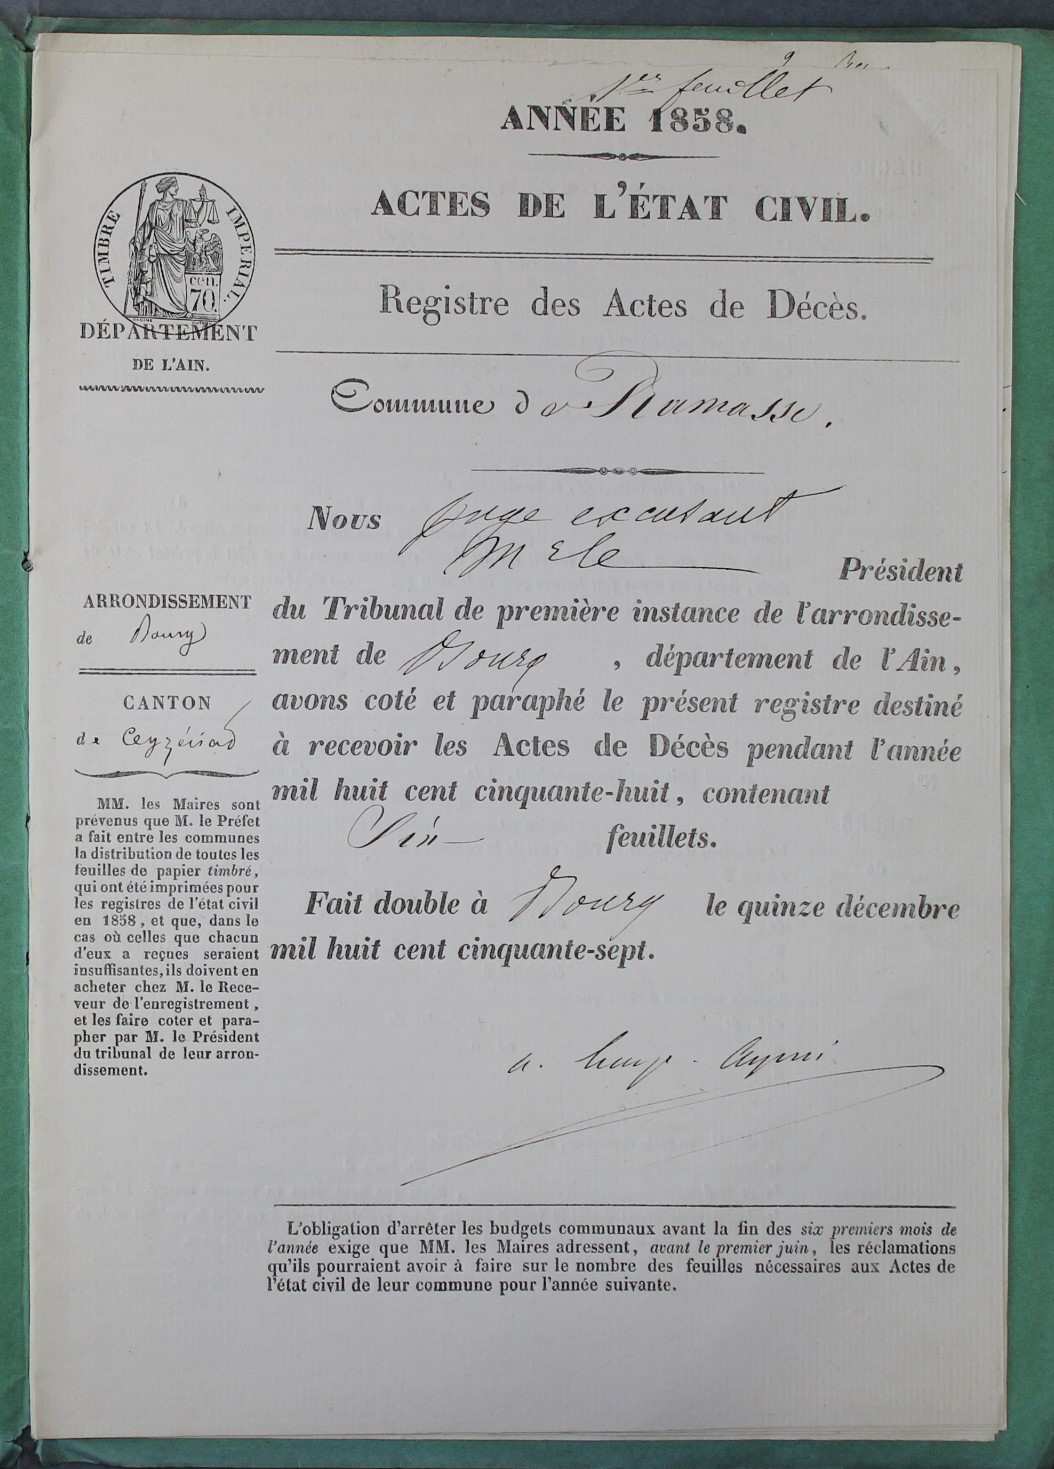 1er feuillet
ANNÉE 1858.
ACTES DE L'ÉTAT CIVIL.
TIMBRE IMPERIAL.
cen.
70
DÉPARTEMENT
DE L'AIN.
Registre des Actes de Décès.
Commune de Ramasse.
Nous juge excusant
Mr le Président
du Tribunal de première instance de l'arrondisse-
ment de Bourg, département de l'Ain,
avons coté et paraphé le présent registre destiné
à recevoir les Actes de Décès pendant l'année
mil huit cent cinquante-huit, contenant
Six feuillets.
Fait double à Bourg le quinze décembre
mil huit cent cinquante-sept.
ARRONDISSEMENT
de Bourg
CANTON
de Ceyzériat
MM. les Maires sont
prévenus que M. le Préfet
a fait entre les communes
la distribution de toutes les
feuilles de papier timbré,
qui ont été imprimées pour
les registres de l'état civil
en 1858, et que, dans le
cas où celles que chacun
d'eux a reçues seraient
insuffisantes, ils doivent en
acheter chez M. le Rece-
veur de l'enregistrement,
et les faire coter et para-
pher par M. le Président
du tribunal de leur arron-
dissement.
L'obligation d'arrêter les budgets communaux avant la fin des six premiers mois de
l'année exige que MM. les Maires adressent, avant le premier juin, les réclamations
qu'ils pourraient avoir à faire sur le nombre des feuilles nécessaires aux Actes de
l'état civil de leur commune pour l'année suivante.